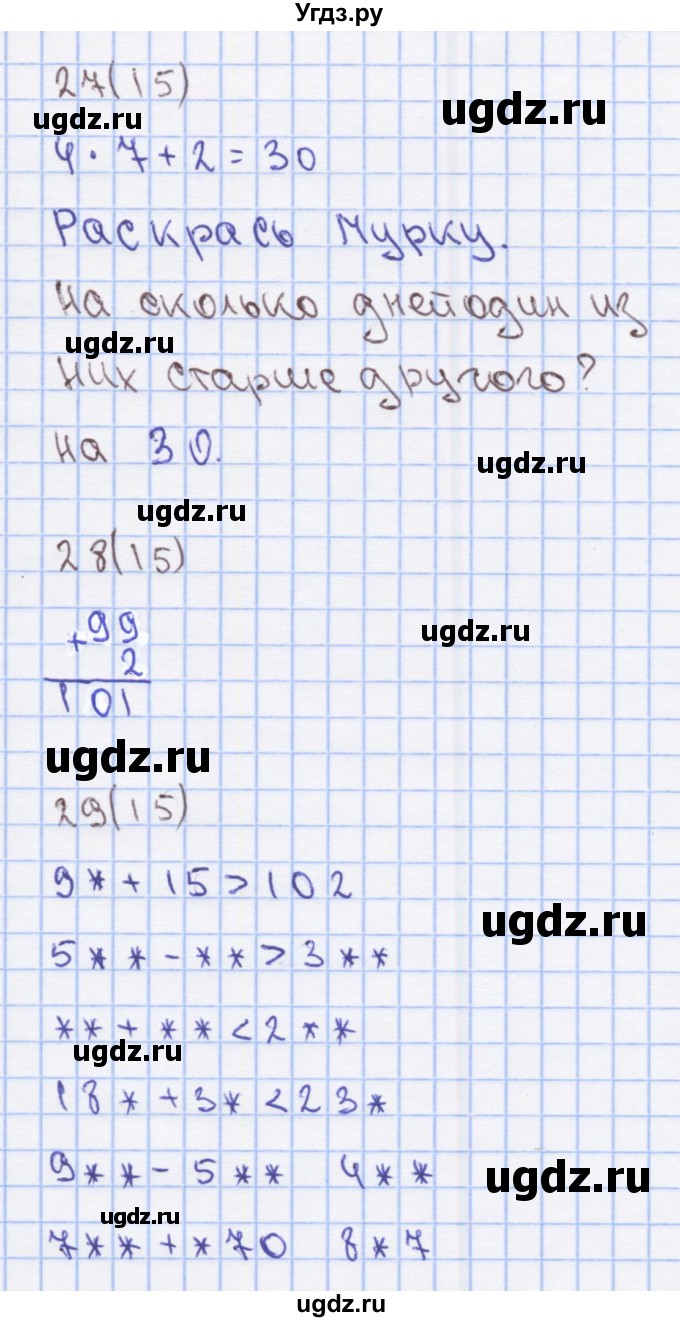 Угдз.ру
27(15)
ugdz.ru
ugdz.ru
4·7+2=30
Раскрась Мурку.
На сколько дней один из
ugdz.ru
них старше другого?
на 30.
ugdz.ru
ugdz.ru
28(15)
+99
ugdz.ru
2
101
ugdz.ru
29(15)
9*+15>102
ugdz.ru
5**-**>3**
**+**<2**
ugdz.ru
18*+3*<23*
9**-5** 4**
ugdz.ru
ugdz.ru
7**+*70 8*7
ugdz.ru